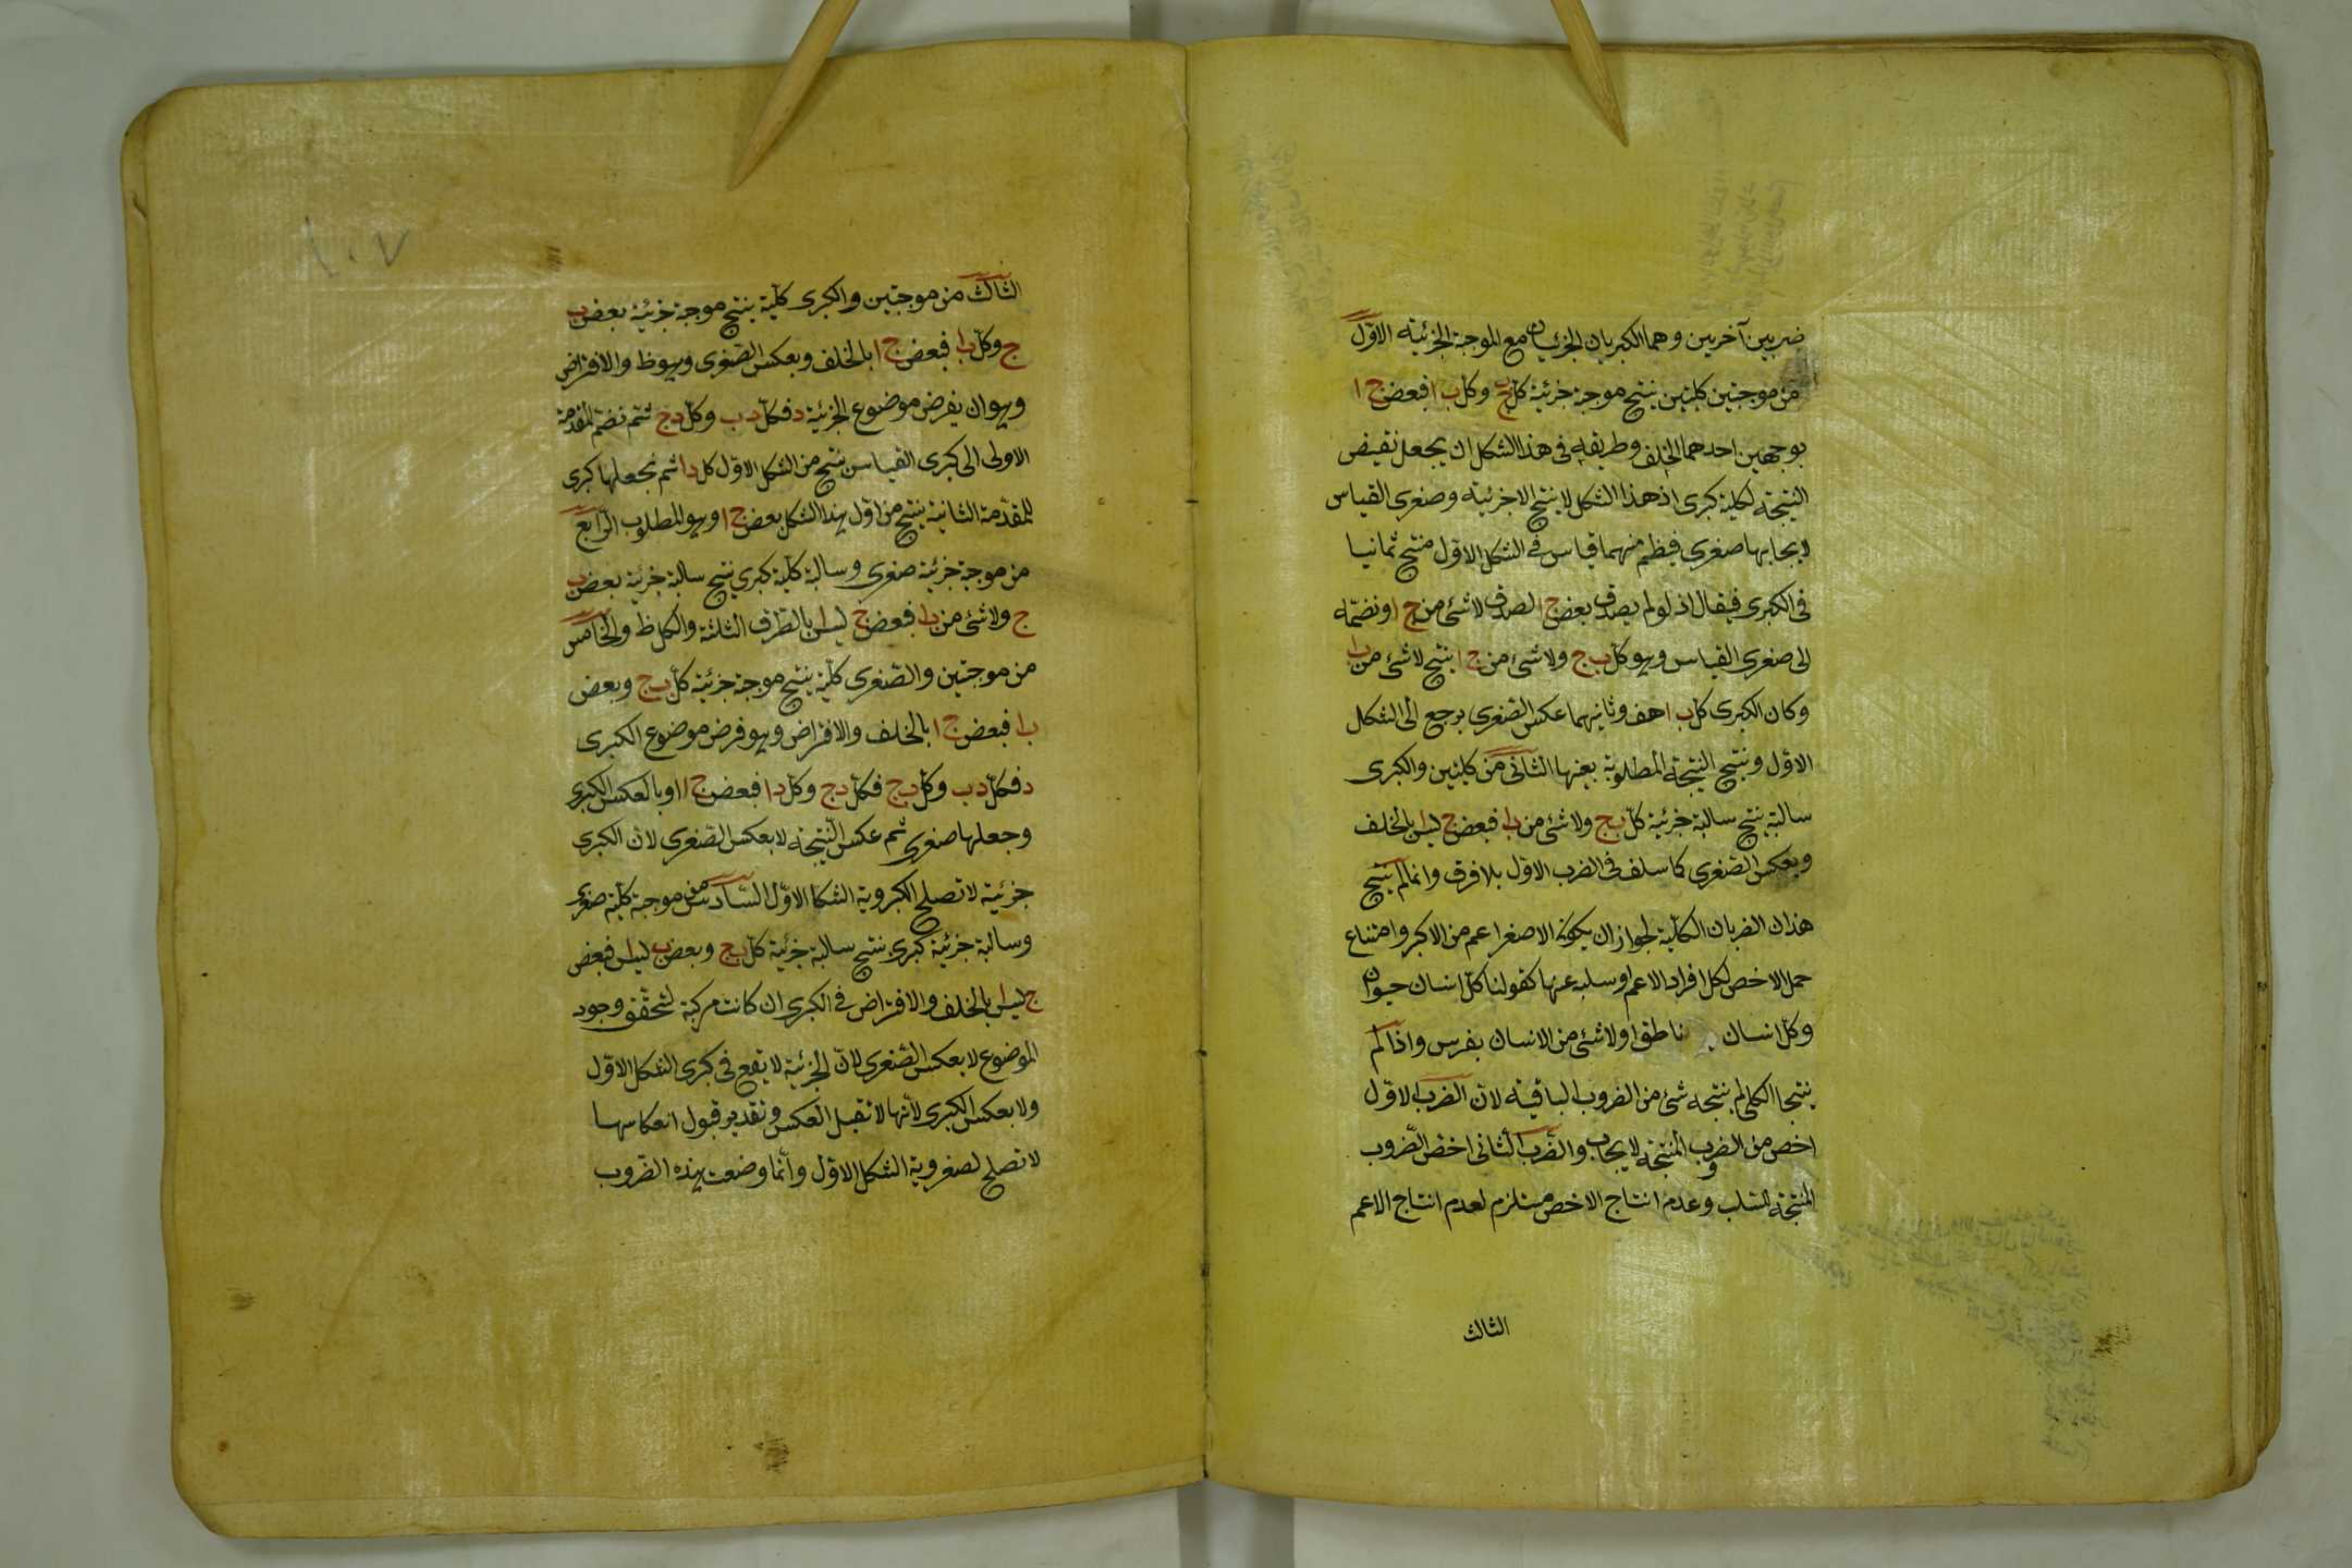 ضربين آخرين وهما الكبريان الجزئيتان مع الموجبة الجزئية الاول
من موجبتين كليتين ينتج موجبة جزئية كل ب ج وكل ب ا فبعض ج ا
بوجهين احدهما الخلف وطريقه فى هذا الشكل ان يجعل نقيض
النتيجة لكلية كبرى اذ هذا الشكل لا ينتج الا جزئية وصغرى القياس
لايجابها صغرى فينظم منهما قياس فى الشكل الاول منتج
فى الكبرى فيقال اذ لو لم يصدق بعض ج ا لصدق لا شئ من ج ا ونضمه
الى صغرى القياس وهو كل ب ج ولا شئ من ج ا ينتج لا شئ من ب ا
وكان الكبرى كل ب ا هف وثانيهما عكس الصغرى يرجع الى الشكل
الاول وينتج النتيجة المطلوبة بعينها الثانى من كليتين والكبرى
سالبة ينتج سالبة جزئية كل ب ج ولا شئ من ب ا فبعض ج ليس ا بالخلف
وبعكس الصغرى كما سلف فى الضرب الاول بلا فرق وانما لم ينتج
هذان الضربان الكلية لجواز ان يكون الاصغر اعم من الاكبر وامتناع
حمل الاخص لكل افراد الاعم وسلبه عنها كقولنا كل انسان حيوان
وكل انسان ناطق او لا شئ من الانسان بفرس واذا لم
ينتجا الكلى لم ينتجه شئ من الضروب الباقية لان الضرب الاول
اخص من الضروب المنتجة لايجاب والضرب الثانى اخص الضروب
المنتجة للسلب وعدم انتاج الاخص مستلزم لعدم انتاج الاعم
الثالث
١٠٧
الثالث من موجبتين والكبرى كلية ينتج موجبة جزئية بعض ب
ج وكل ب ا فبعض ج ا بالخلف وبعكس الصغرى وهو ظ والافتراض
وهو ان يفرض موضوع الجزئية د فكل د ب وكل د ج ثم نضم المقدمة
الاولى الى كبرى القياس ينتج من الشكل الاول كل د ا ثم نجعلها كبرى
للمقدمة الثانية ينتج من اول هذا الشكل بعض ج ا وهو المطلوب الرابع
من موجبة جزئية صغرى وسالبة كلية كبرى ينتج سالبة جزئية بعض ب
ج ولا شئ من ب ا فبعض ج ليس ا بالطرق الثلثة والكل ظ والخامس
من موجبتين والصغرى كلية ينتج موجبة جزئية كل ب ج وبعض
ب ا فبعض ج ا بالخلف والافتراض وهو فرض موضوع الكبرى
د فكل د ب وكل ب ج فكل د ج وكل د ا فبعض ج ا او بالعكس الكبرى
وجعلها صغرى ثم عكس النتيجة لا بعكس الصغرى لان الكبرى
جزئية لا تصلح لكبروية الشكل الاول السادس من موجبة كلية صغرى
وسالبة جزئية كبرى ينتج سالبة جزئية كل ب ج وبعض ب ليس ا فبعض
ج ليس ا بالخلف والافتراض فى الكبرى ان كانت مركبة لتحقق وجود
الموضوع لا بعكس الصغرى لان الجزئية لا يقع فى كبرى الشكل الاول
ولا بعكس الكبرى لانها لا تقبل العكس وتقدير قبول انعكاسها
لا تصلح لصغروية الشكل الاول وانما وضعت هذه الضروب